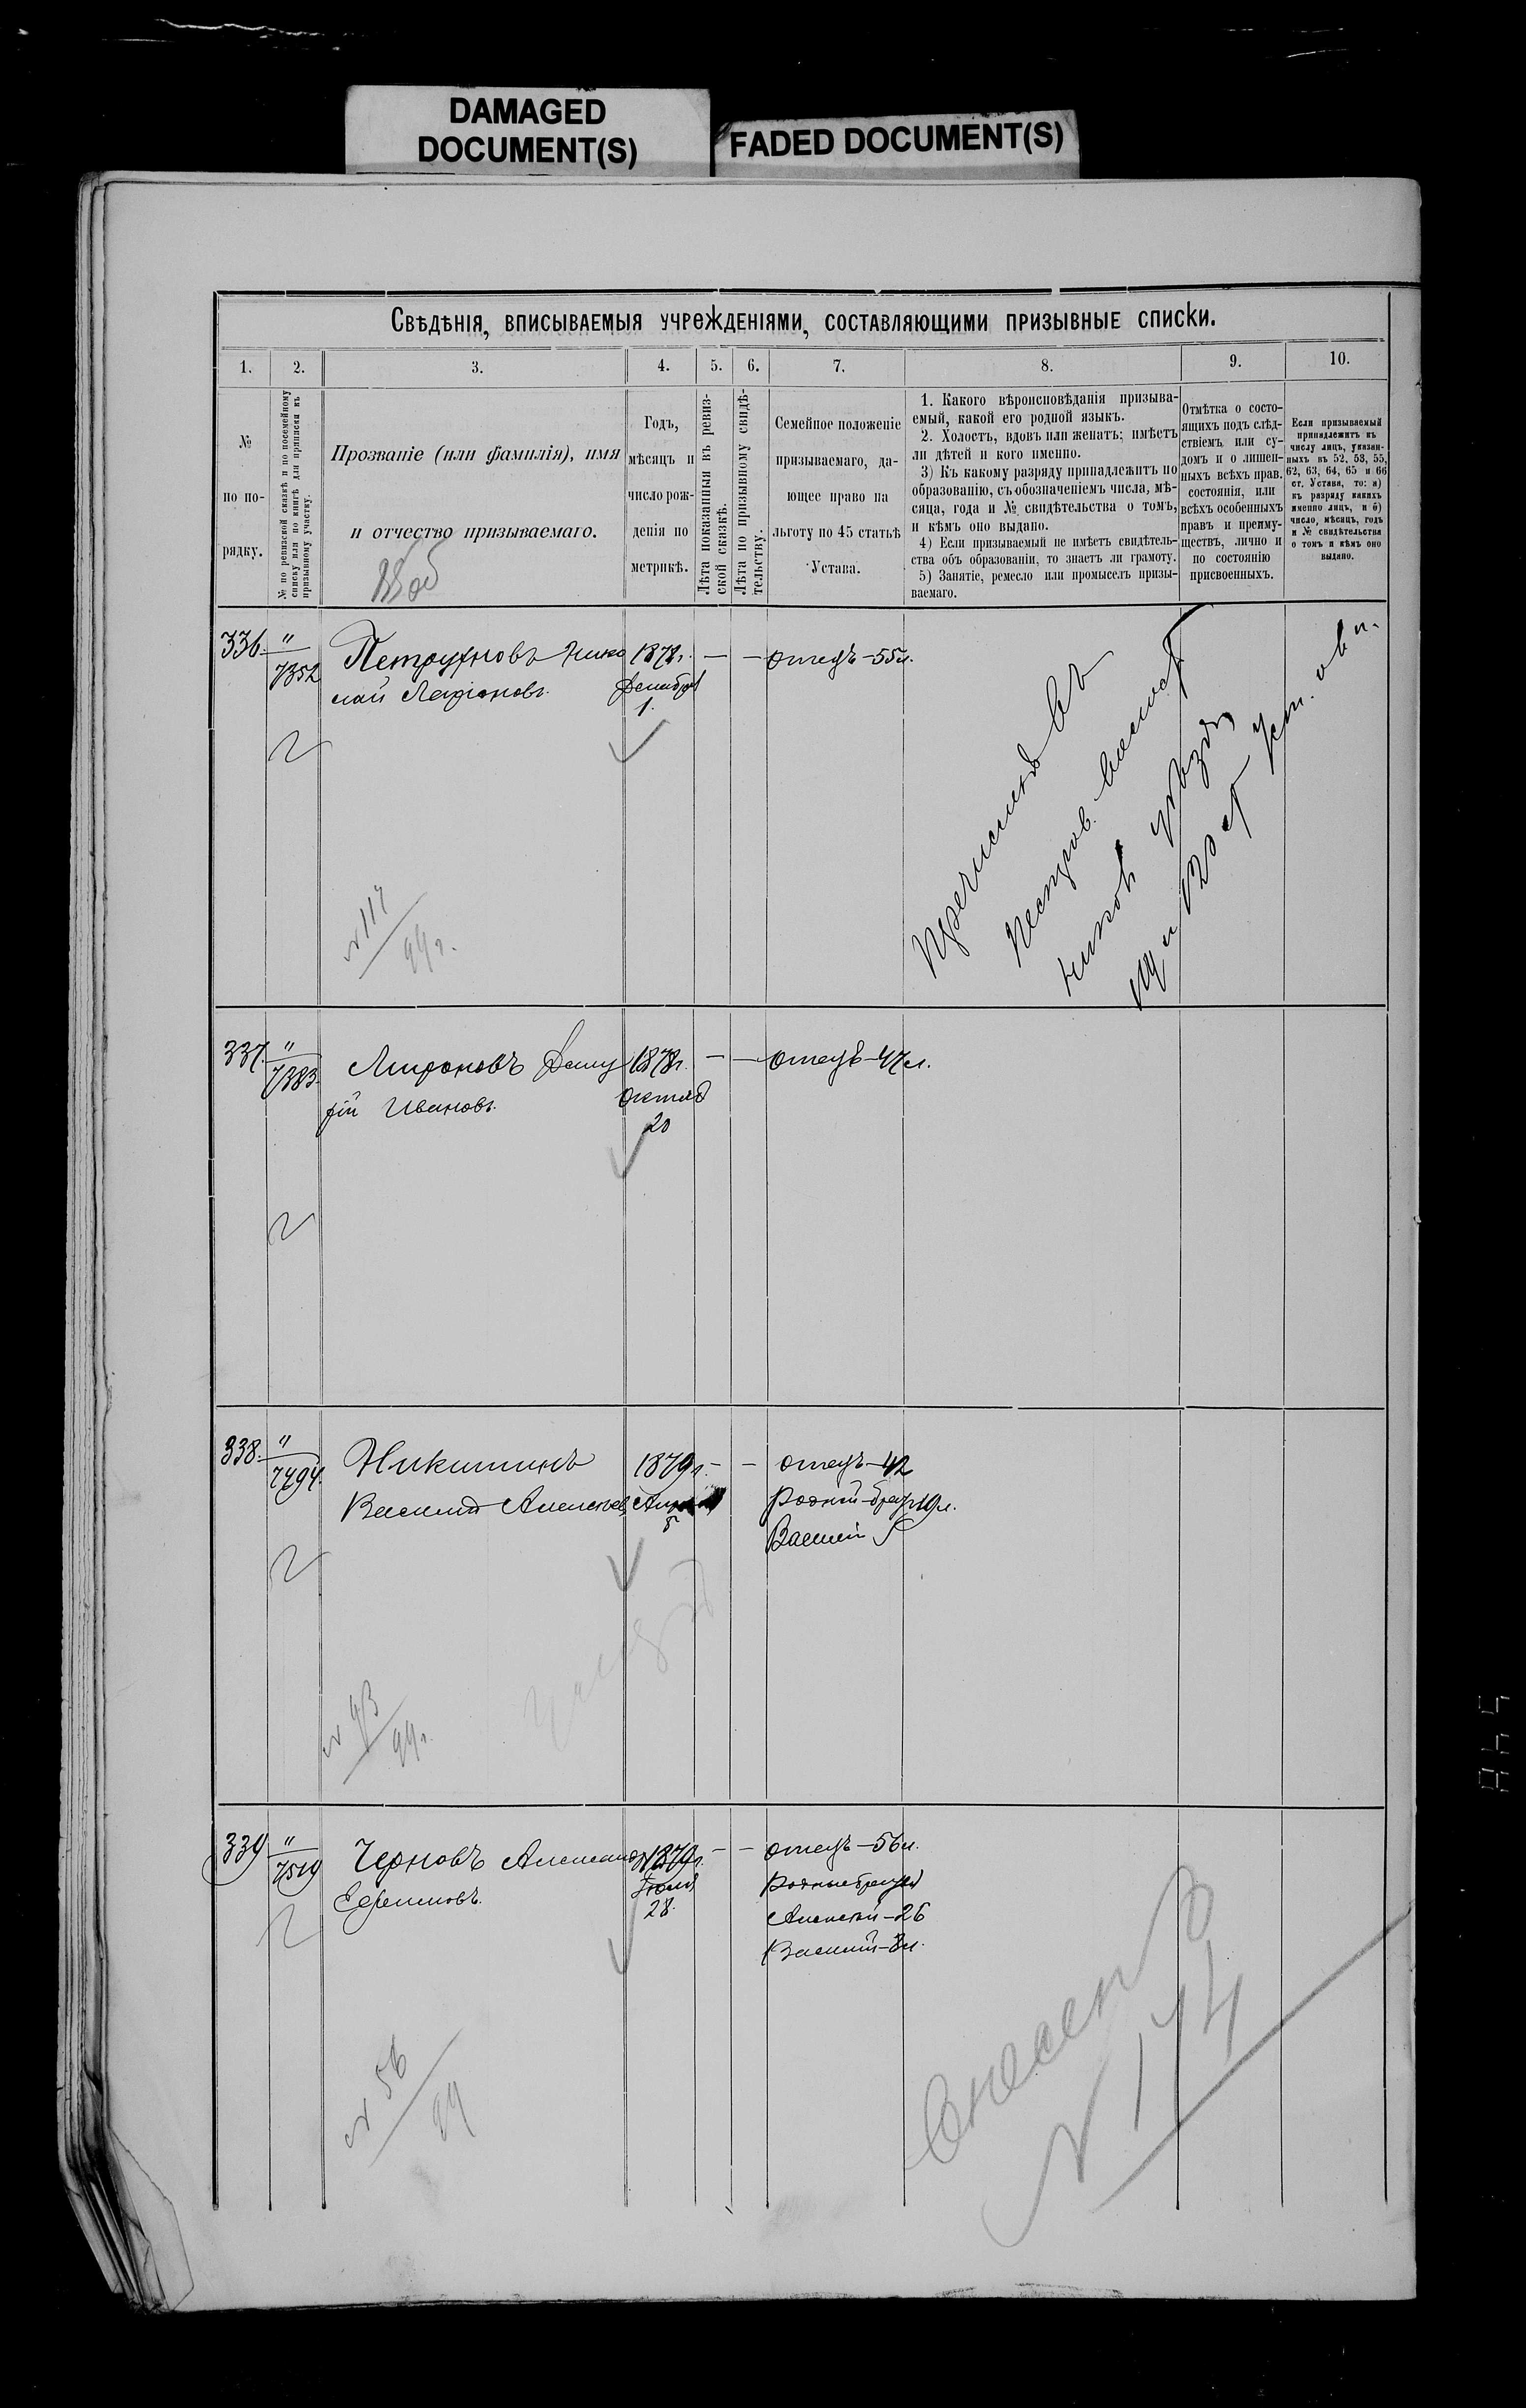 DAMAGED
DOCUMENT(S)
FADED DOCUMENT(S)
Свѣдѣнія, вписываемыя учрежденіями, составляющими призывные списки.
1. 2. 3. 4. 5. 6. 7. 8. 9. 10.
№
по по-
рядку.
№ по ревизской сказкѣ и по посемейному
списку или по книгѣ для приписки къ
призывному участку.
Прозваніе (или фамилія), имя
и отчество призываемаго.
Годъ,
мѣсяцъ и
число рож-
денія по
метрикѣ.
Лѣта показанныя въ ревиз-
ской сказкѣ.
Лѣта по призывному свидѣ-
тельству.
Семейное положеніе
призываемаго, да-
ющее право на
льготу по 45 статьѣ
Устава.
1. Какого вѣроисповѣданія призыва-
емый, какой его родной языкъ.
2. Холостъ, вдовъ или женатъ; имѣетъ
ли дѣтей и кого именно.
3) Къ какому разряду принадлежитъ по
образованію, съ обозначеніемъ числа, мѣ-
сяца, года и № свидѣтельства о томъ,
и кѣмъ оно выдано.
4) Если призываемый не имѣетъ свидѣтель-
ства объ образованіи, то знаетъ ли грамоту.
5) Занятіе, ремесло или промыселъ призы-
ваемаго.
Отмѣтка о состо-
ящихъ подъ слѣд-
ствіемъ или су-
домъ и о лишен-
ныхъ всѣхъ прав.
состоянія, или
всѣхъ особенныхъ
правъ и преиму-
ществъ, лично и
по состоянію
присвоенныхъ.
Если призываемый
принадлежитъ къ
числу лицъ, указан-
ныхъ въ 52, 53, 55,
62, 63, 64, 65 и 66
ст. Устава, то: а)
къ разряду какихъ
именно лицъ, и б)
число, мѣсяцъ, годъ
и № свидѣтельства
о томъ и кѣмъ оно
выдано.
336. " Петрухновъ Нико 1878г. — — отецъ—55л.
7352 лай Ларіоновъ. Декабря
1.
Пречислен въ
уѣзда
120 ст. Уст. о в. п.
№ 117
99г.
337. " Мироновъ 1878г. — — отецъ—47л.
7383. Ивановъ. Октяб
20
338. " Никитинъ 1879г. — — отецъ—42
7494. Василій Алексѣев родной брат 19л.
Василій
№ 93
99г.
339 " Черновъ Александр 1879г. — — отецъ—56л.
7519 Ефимовъ. Іюля родные братья
28. Алексѣй—26
Василій—8л.
№ 56
99
Внесенъ
№ 174